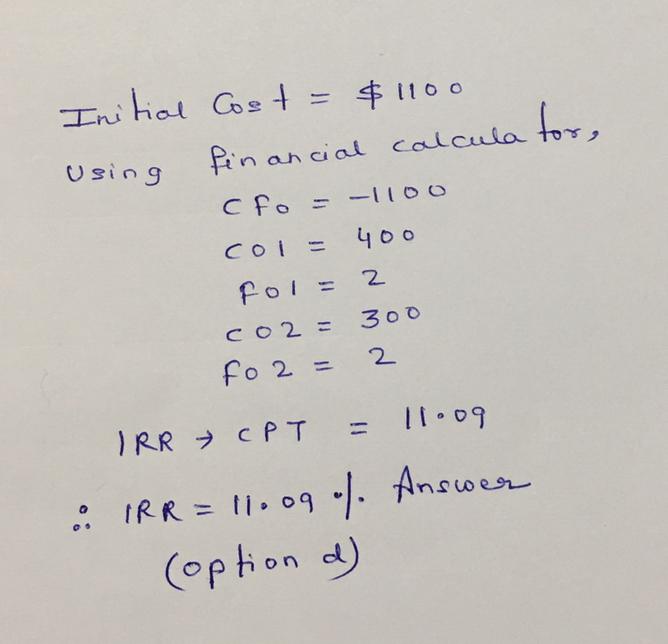 Initial Cost = $1100
Using financial calculator,
CF0 = -1100
C01 = 400
F01 = 2
C02 = 300
F02 = 2
IRR → CPT = 11.09
∴ IRR = 11.09 %. Answer
(option d)